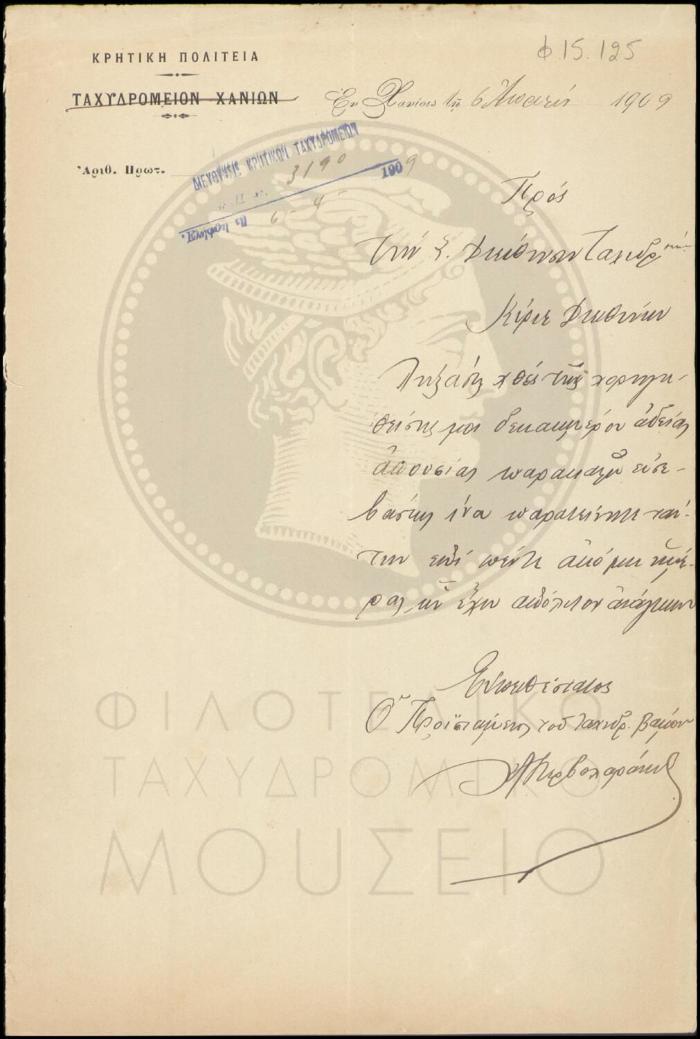 Φ 15.125
ΚΡΗΤΙΚΗ ΠΟΛΙΤΕΙΑ
ΤΑΧΥΔΡΟΜΕΙΟΝ ΧΑΝΙΩΝ
Ἐν Χανίοις τῇ 6 Ἀπριλίου 1909
Ἀριθ. Πρωτ.
ΔΙΕΥΘΥΝΣΙΣ ΚΡΗΤΙΚΩΝ ΤΑΧΥΔΡΟΜΕΙΩΝ
3190
6 - 4 - 1909
Πρός
Τὴν Σ. Διεύθυνσιν Ταχυδρ
Κύριε Διευθυντά
Ληξάσης χθὲς τῆς χορηγη-
θείσης μοι δεκαημέρου ἀδείας
ἀπουσίας παρακαλῶ εὐσε-
βάστως ἵνα παρατείνητε ταύ-
την ἐπὶ πέντε ἀκόμη ἡμέ-
ρας, ὧν ἔχω ἀπόλυτον ἀνάγκην
Εὐπειθέστατος
Ὁ Προϊστάμενος τοῦ Ταχυδρ. Βάμου
ΦΙΛΟΤΕΛΙΚΟ
ΤΑΧΥΔΡΟΜΙΚΟ
ΜΟΥΣΕΙΟ